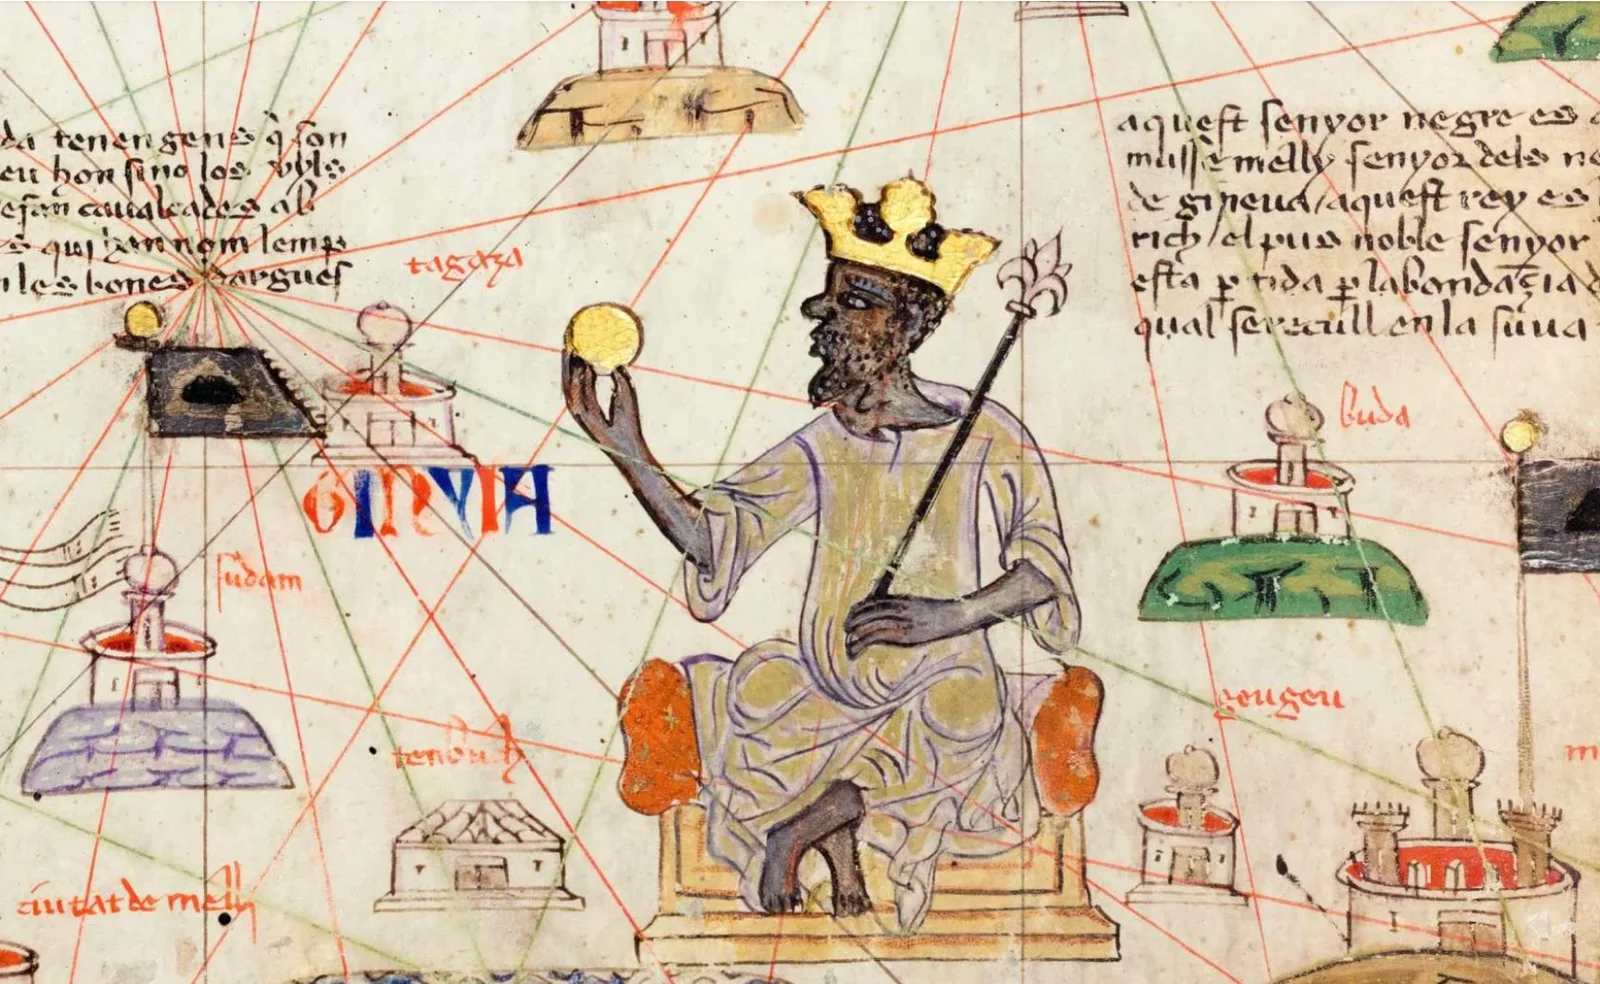 da tenen gens q̃ son
eu hon sino los vyls
efan caualcades ab
s qui han nom lemp
n les bones dargues
tagaza
aquest senyor negre es
musse melly senyor dels ne
de gineua aquest rey es
rich el pus noble senyor
esta ꝑtida ꝑ labondançia d
qual se recull en la suua
buda
GINYIA
sudam
geugeu
tenbuch
m
ciutat de melly